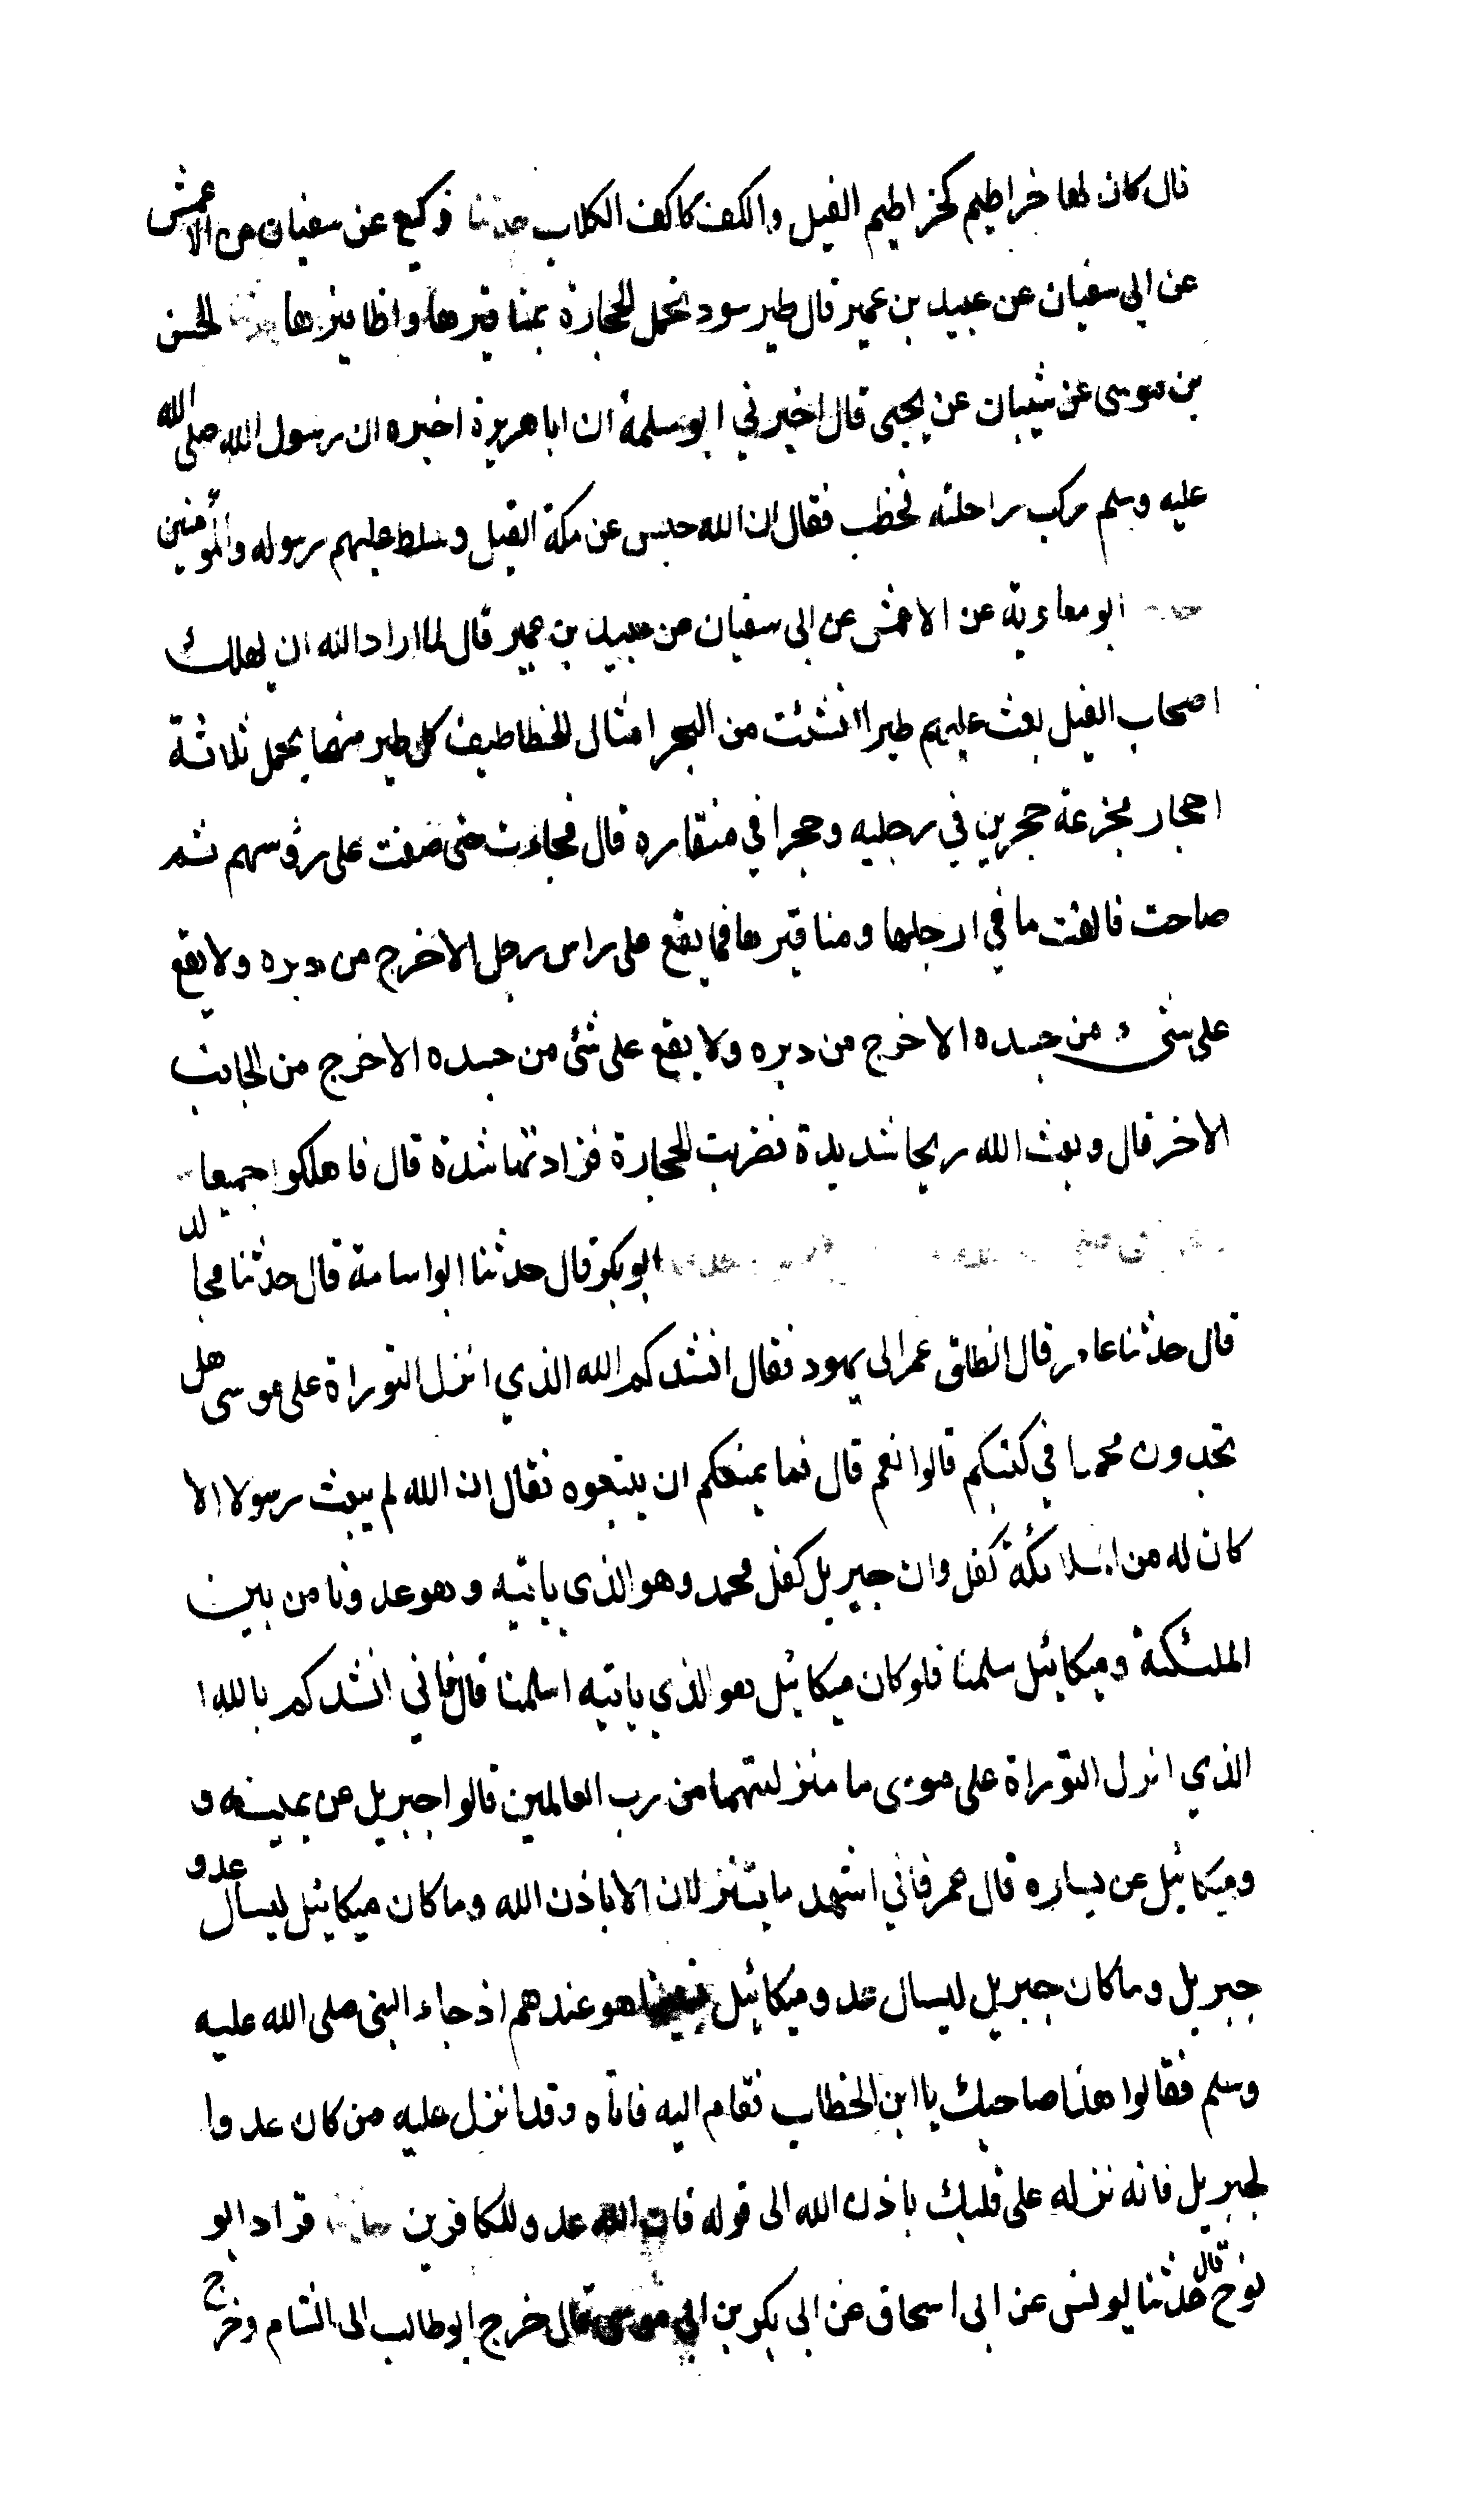 قال كان لها خراطيم كخراطيم الفيل والكف كاكف الكلاب حدثنا وكيع عن سفيان عن الاعمش
عن ابى سفيان عن عبيد بن عمير قال طير سود تحمل الحجارة بمناقيرها واظافيرها حدثنا الحسن
بن موسى عن شيبان عن يحيى قال اخبرني ابو سلمة ان ابا هريرة اخبره ان رسول الله صلى الله
عليه وسلم ركب راحلته فخطب فقال ان الله حبس عن مكة الفيل وسلط عليهم رسوله والمؤمنين
ابو معاوية عن الاعمش عن ابى سفيان عن عبيد بن عمير قال لما اراد الله ان يهلك
اصحاب الفيل بعث عليهم طيرا انشئت من البحر امثال الخطاطيف كل طير منها يحمل ثلاثة
احجار مجزعة حجرين في رجليه وحجرا في منقاره قال فجاءت حتى صفت على رؤسهم ثم
صاحت فالقت ما في ارجلها ومناقيرها فما يقع على راس رجل الا خرج من دبره ولا يقع
على شىء من جسده الا خرج من دبره ولا يقع على شئ من جسده الا خرج من الجانب
الاخر قال وبعث الله ريحا شديدة فضربت الحجارة فزادتها شدة قال فاهلكوا جميعا
ابو بكر قال حدثنا ابو اسامة قال حدثنا مجالد
قال حدثنا عامر قال انطلق عمر الى يهود فقال انشدكم الله الذي انزل التوراة على موسى هل
تجدون محمدا في كتبكم قالوا نعم قال فما يمنعكم ان يتبعوه فقال ان الله لم يبعث رسولا الا
كان له من الملائكة كفل وان جبريل كفل محمد وهو الذى ياتيه وهو عدونا من بين
الملئكة وميكائيل سلمنا فلو كان ميكائيل هو الذي ياتيه اسلمنا قال فاني انشدكم بالله ا
الذي انزل التوراة على موسى ما منزلتهما من رب العالمين قالوا جبريل عن يمينه و
وميكائيل عن يساره قال عمر فاني اشهد ما يتنزلان الا باذن الله وما كان ميكائيل ليسال عدو
جبريل وما كان جبريل ليسال عدو ميكائيل فبينما هو عندهم اذ جاء النبى صلى الله عليه
وسلم فقالوا هذا صاحبك يا ابن الخطاب فقام اليه فاتاه وقد انزل عليه من كان عدوا
لجبريل فانه نزله على قلبك باذن الله الى قوله فان الله عدو للكافرين حدثنا قراد ابو
نوح قال حدثنا يونس عن ابى اسحاق عن ابى بكر بن ابى موسى قال خرج ابو طالب الى الشام وخرج